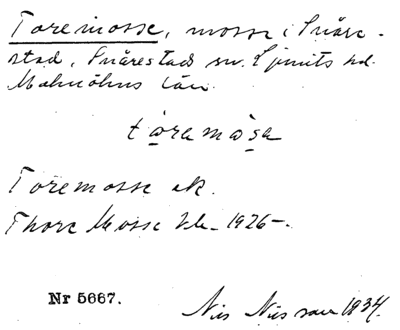 Toremosse, mosse i Snåre-
stad, Snårestads sn. Ljunits hd.
Malmöhus län.
tåramåsa
Toremosse ek.
Thore Mosse 1926-.
Nr 5667.
Nils Nilsson 1934.